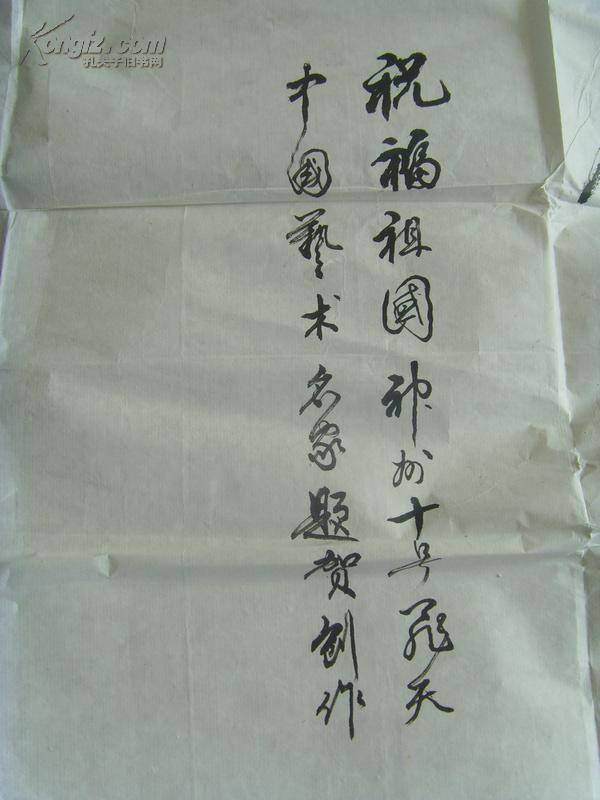 祝福祖國神州十号飛天
中國藝术名家題贺創作
Kongfz.com
孔夫子旧书网